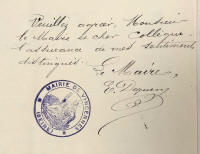 Veuillez agréer, Monsieur
le Maire et cher Collègue
l'assurance de mes sentiments
distingués.
Le Maire,
MAIRIE DE VINCENNES